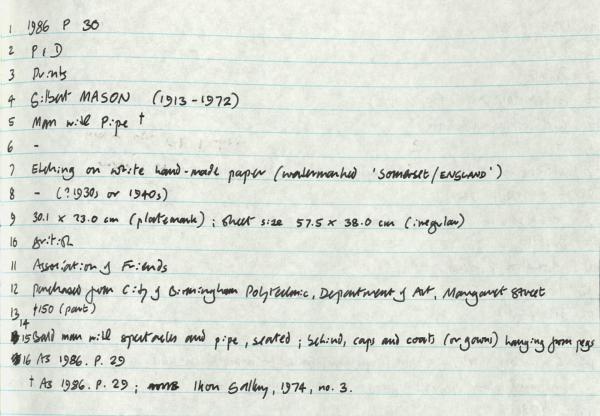 1 1986 P 30
2 P & D
3 Prints
4 Gilbert MASON (1913-1972)
5 Man with Pipe †
6 -
7 Etching on white hand-made paper (watermarked 'SOMERSET/ENGLAND')
8 - (?1930s or 1940s)
9 30.1 x 23.0 cm (platemark); sheet size 57.5 x 38.0 cm (irregular)
10 British
11 Association of Friends
12 Purchased from City of Birmingham Polytechnic, Department of Art, Margaret Street
13 150 (part)
14
15 Bald man with spectacles and pipe, seated; behind, caps and coats (or gowns) hanging from pegs
16 As 1986. P. 29
† As 1986. P. 29; Ikon Gallery, 1974, no. 3.